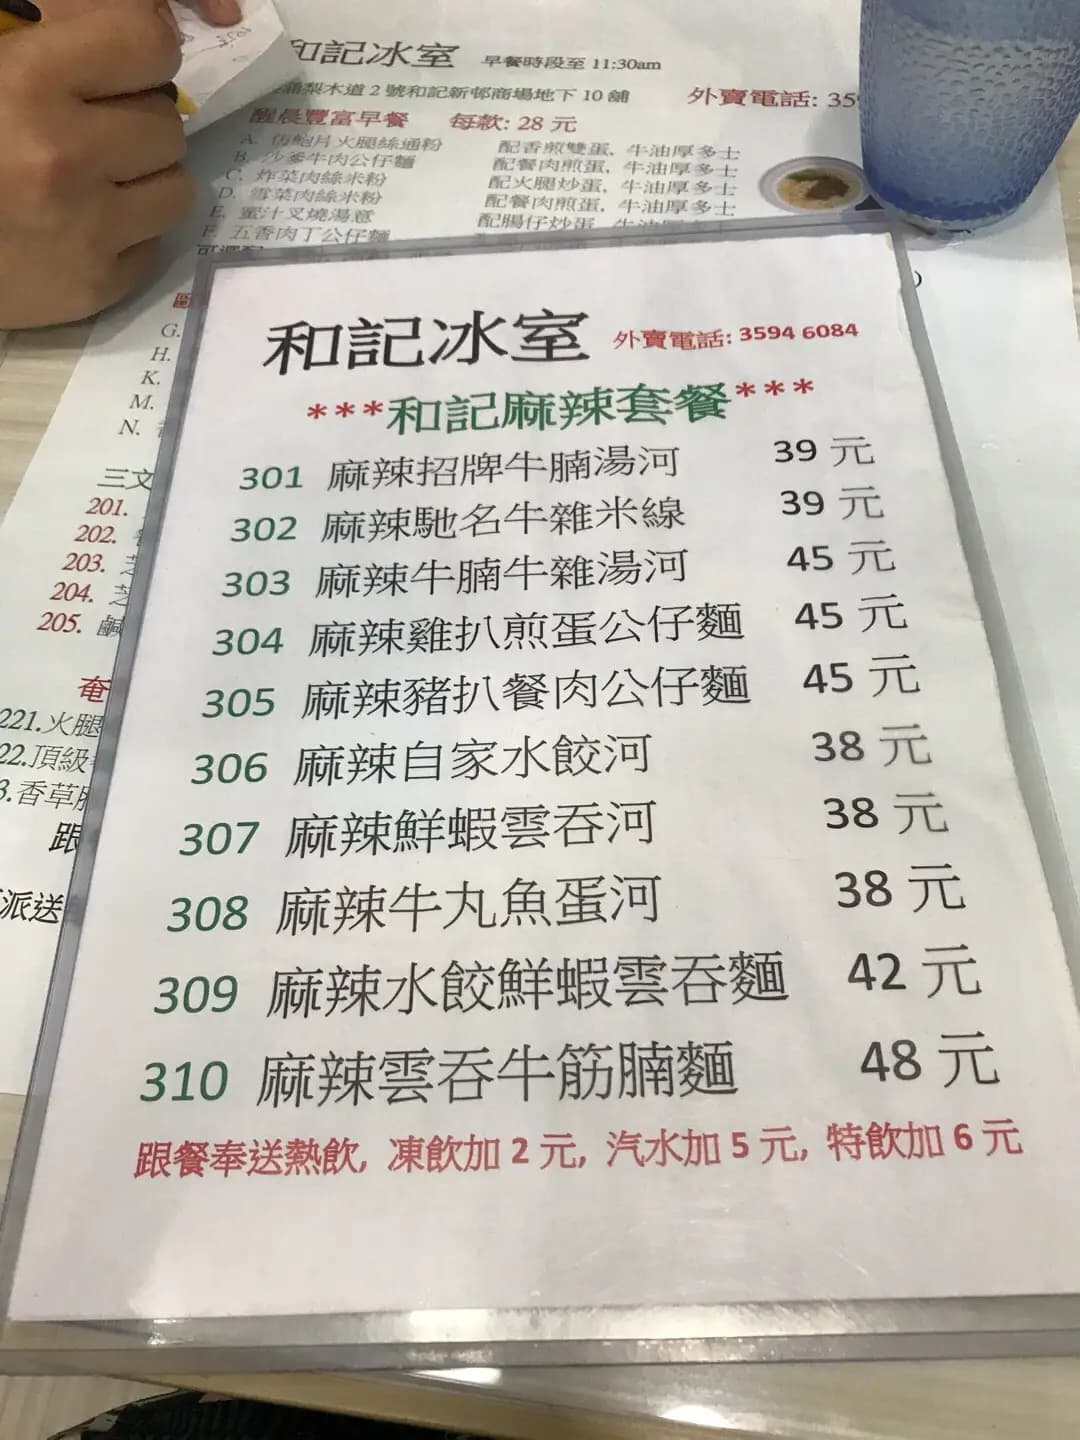 和記冰室 早餐時段至 11:30am
梨木道 2 號和記新邨商場地下 10 舖 外賣電話: 35
醒晨豐富早餐 每款: 28 元
A. 仿鮑片火腿絲通粉 配香煎雙蛋, 牛油厚多士
B. 沙爹牛肉公仔麵 配餐肉煎蛋, 牛油厚多士
C. 炸菜肉絲米粉 配火腿炒蛋, 牛油厚多士
D. 雪菜肉絲米粉 配餐肉煎蛋, 牛油厚多士
E. 蜜汁叉燒湯意 配腸仔炒蛋, 牛油厚多士
F. 五香肉丁公仔麵
G.
H.
K.
M.
N.
三文
201.
202.
203. 芝
204. 芝
205. 鹹
奄
221.火腿
22.頂級
3.香草
跟
派送
和記冰室 外賣電話: 3594 6084
***和記麻辣套餐***
301 麻辣招牌牛腩湯河 39 元
302 麻辣馳名牛雜米線 39 元
303 麻辣牛腩牛雜湯河 45 元
304 麻辣雞扒煎蛋公仔麵 45 元
305 麻辣豬扒餐肉公仔麵 45 元
306 麻辣自家水餃河 38 元
307 麻辣鮮蝦雲吞河 38 元
308 麻辣牛丸魚蛋河 38 元
309 麻辣水餃鮮蝦雲吞麵 42 元
310 麻辣雲吞牛筋腩麵 48 元
跟餐奉送熱飲, 凍飲加 2 元, 汽水加 5 元, 特飲加 6 元